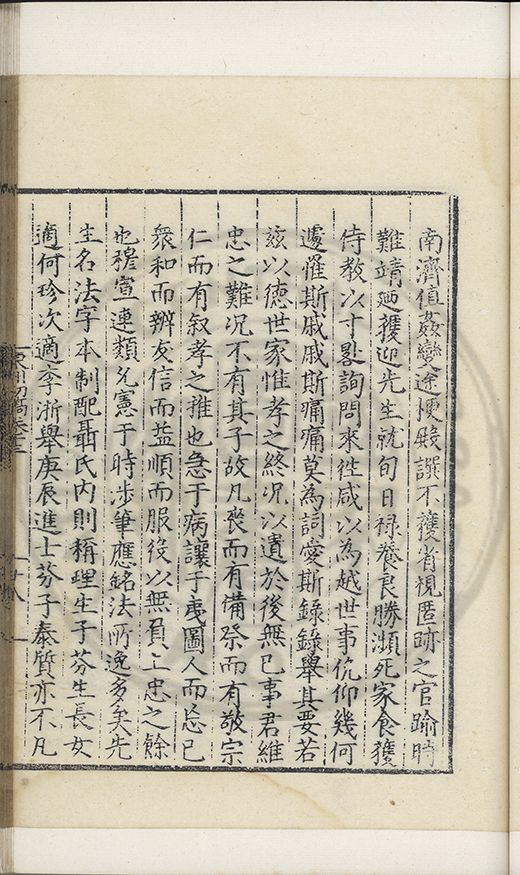 南濟值姦變途梗毀譔不獲省視匿跡之官踰時
難靖廼獲迎先生就旬日祿養良勝瀕死家食獲
侍教以寸晷詢問來徃咸以為越世事伉仰幾何
遽罹斯戚戚斯痛痛莫為詞爰斯錄錄舉其要若
玆以德世家惟孝之終况以遺於後無已事君維
忠之難况不有其子故凡喪而有備祭而有敬宗
仁而有叙孝之推也急于病讓于夷圖人而忘已
衆和而辦友信而益順而服役以無負上忠之餘
也稽實連類允憲于時涉筆應銘法所逸多矣先
生名法字本制配聶氏内則稱理生子芬生長女
適何珍次適李浙舉庚辰進士芬子泰質亦不凡